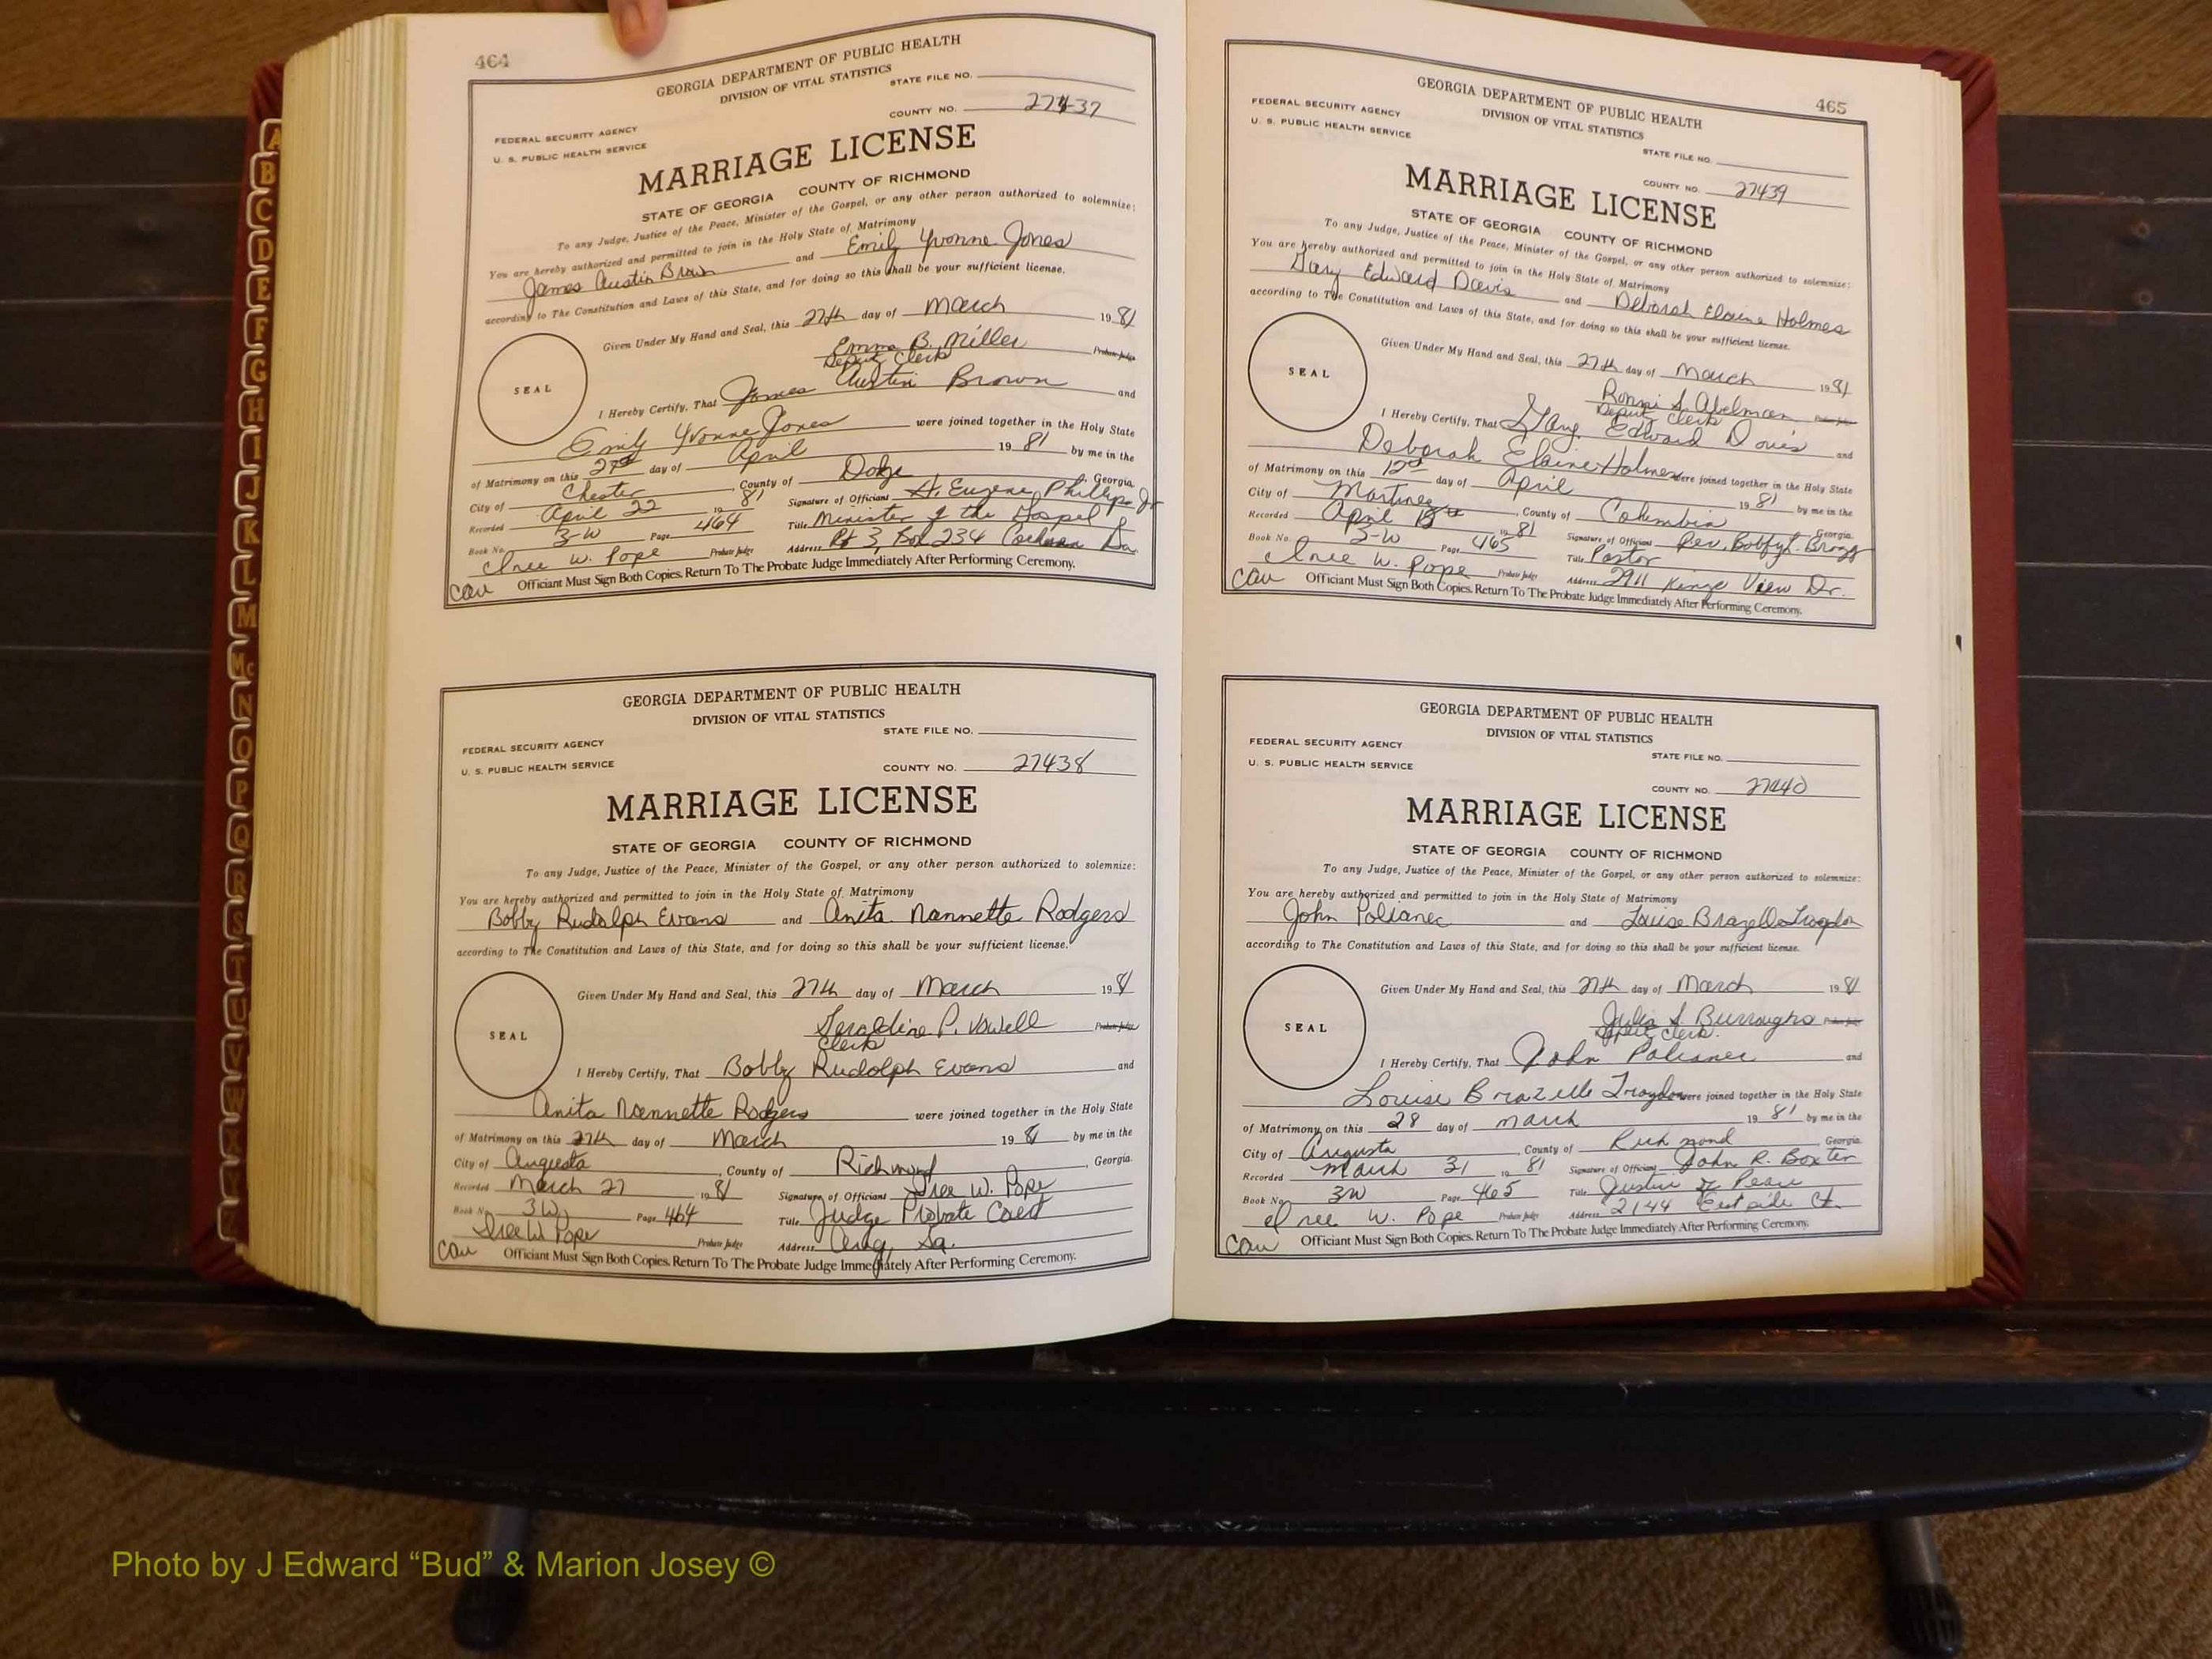 464
GEORGIA DEPARTMENT OF PUBLIC HEALTH
DIVISION OF VITAL STATISTICS
STATE FILE NO.
COUNTY NO. 27437
FEDERAL SECURITY AGENCY
U. S. PUBLIC HEALTH SERVICE
MARRIAGE LICENSE
STATE OF GEORGIA COUNTY OF RICHMOND
To any Judge, Justice of the Peace, Minister of the Gospel, or any other person authorized to solemnize:
You are hereby authorized and permitted to join in the Holy State of Matrimony
James Austin Brown and Emily Yvonne Jones
according to The Constitution and Laws of this State, and for doing so this shall be your sufficient license.
Given Under My Hand and Seal, this 27th day of March 1981
Emma B. Miller Probate Judge
Deputy Clerk
SEAL
I Hereby Certify, That James Austin Brown and
Emily Yvonne Jones were joined together in the Holy State
of Matrimony on this day of April 1981 by me in the
City of Chester, County of Dodge, Georgia.
Recorded April 22 1981 Signature of Officiant H. Eugene Phillips Jr
Book No. 3-W Page 464 Title Minister of the Gospel
Iree W. Pope Probate Judge Address Rt 3, Box 234 Cochran Ga
cow Officiant Must Sign Both Copies. Return To The Probate Judge Immediately After Performing Ceremony.
GEORGIA DEPARTMENT OF PUBLIC HEALTH
DIVISION OF VITAL STATISTICS
STATE FILE NO.
FEDERAL SECURITY AGENCY
U. S. PUBLIC HEALTH SERVICE
COUNTY NO. 27438
MARRIAGE LICENSE
STATE OF GEORGIA COUNTY OF RICHMOND
To any Judge, Justice of the Peace, Minister of the Gospel, or any other person authorized to solemnize:
You are hereby authorized and permitted to join in the Holy State of Matrimony
Bobby Rudolph Evans and Anita Nannette Rodgers
according to The Constitution and Laws of this State, and for doing so this shall be your sufficient license.
Given Under My Hand and Seal, this 27th day of March 1981
Geraldine P. Vowell Probate Judge
Clerk
SEAL
I Hereby Certify, That Bobby Rudolph Evans and
Anita Nannette Rodgers were joined together in the Holy State
of Matrimony on this 27th day of March 1981 by me in the
City of Augusta, County of Richmond, Georgia.
Recorded March 27 1981 Signature of Officiant Iree W. Pope
Book No. 3W Page 464 Title Judge Probate Court
Iree W. Pope Probate Judge Address Aug, Ga.
cow Officiant Must Sign Both Copies. Return To The Probate Judge Immediately After Performing Ceremony.
465
GEORGIA DEPARTMENT OF PUBLIC HEALTH
DIVISION OF VITAL STATISTICS
FEDERAL SECURITY AGENCY
U. S. PUBLIC HEALTH SERVICE
STATE FILE NO.
COUNTY NO. 27439
MARRIAGE LICENSE
STATE OF GEORGIA COUNTY OF RICHMOND
To any Judge, Justice of the Peace, Minister of the Gospel, or any other person authorized to solemnize:
You are hereby authorized and permitted to join in the Holy State of Matrimony
Gary Edward Davis and Deborah Elaine Holmes
according to The Constitution and Laws of this State, and for doing so this shall be your sufficient license.
Given Under My Hand and Seal, this 27th day of March 1981
Ronni S. Abelman Probate Judge
Deputy Clerk
SEAL
I Hereby Certify, That Gary Edward Davis and
Deborah Elaine Holmes were joined together in the Holy State
of Matrimony on this day of April 1981 by me in the
City of Martinez, County of Columbia Georgia.
Recorded April 1981 Signature of Officiant Rev. Bobby L. Bragg
Book No. 3-W Page 465 Title Pastor
Iree W. Pope Probate Judge Address 2911 Kings View Dr.
cow Officiant Must Sign Both Copies. Return To The Probate Judge Immediately After Performing Ceremony.
GEORGIA DEPARTMENT OF PUBLIC HEALTH
DIVISION OF VITAL STATISTICS
FEDERAL SECURITY AGENCY
U. S. PUBLIC HEALTH SERVICE
STATE FILE NO.
COUNTY NO. 27440
MARRIAGE LICENSE
STATE OF GEORGIA COUNTY OF RICHMOND
To any Judge, Justice of the Peace, Minister of the Gospel, or any other person authorized to solemnize:
You are hereby authorized and permitted to join in the Holy State of Matrimony
John Polianec and Louise Brazelle
according to The Constitution and Laws of this State, and for doing so this shall be your sufficient license.
Given Under My Hand and Seal, this 27th day of March 1981
Julia S. Burroughs Probate Judge
Deputy Clerk.
SEAL
I Hereby Certify, That John Polianec and
Louise Brazelle were joined together in the Holy State
of Matrimony on this 28 day of march 1981 by me in the
City of Augusta, County of Richmond, Georgia.
Recorded March 31 1981 Signature of Officiant John R. Baxter
Book No. 3W Page 465 Title Justice of Peace
Iree W. Pope Probate Judge Address 2144 Eastside Ct.
cow Officiant Must Sign Both Copies. Return To The Probate Judge Immediately After Performing Ceremony.
A
B
C
D
E
F
G
H
I
J
K
L
M
Mc
N
O
P
Q
R
S
T
U
V
W
X
Y
Z
Photo by J Edward “Bud” & Marion Josey ©